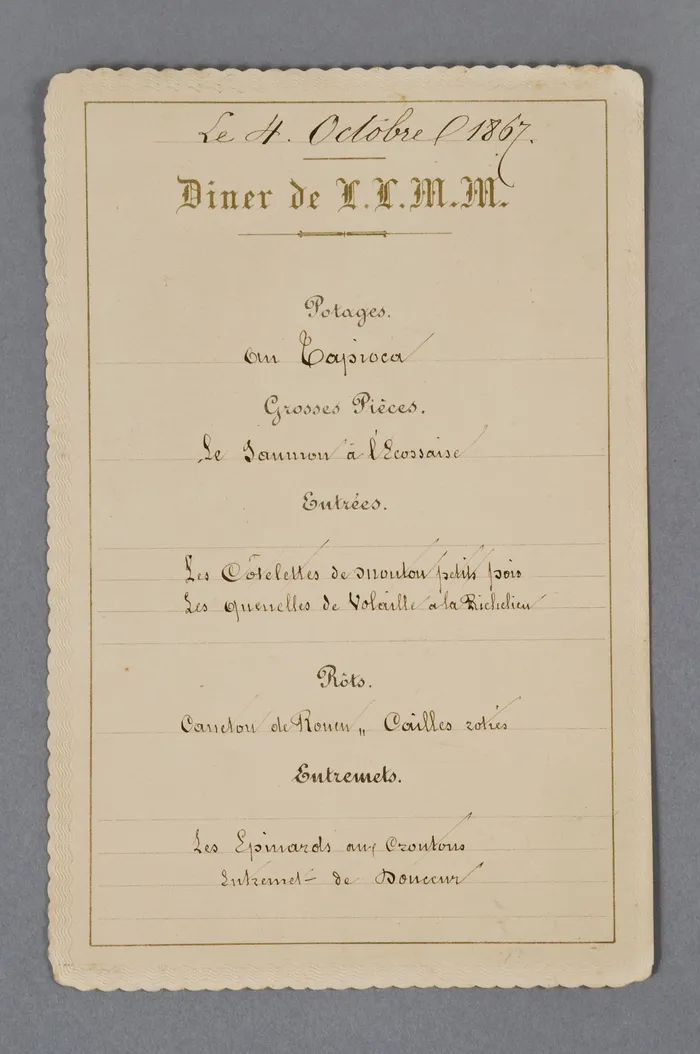 Le 4. Octobre 1867.
Diner de L.L.M.M.
Potages.
au Tapioca
Grosses Pièces.
Le Saumon à l'Ecossaise
Entrées.
Les Côtelettes de mouton petits pois
Les quenelles de Volaille à la Richelieu
Rôts.
Caneton de Rouen „ Cailles roties
Entremets.
Les Epinards aux Croutons
Entremet de Douceur